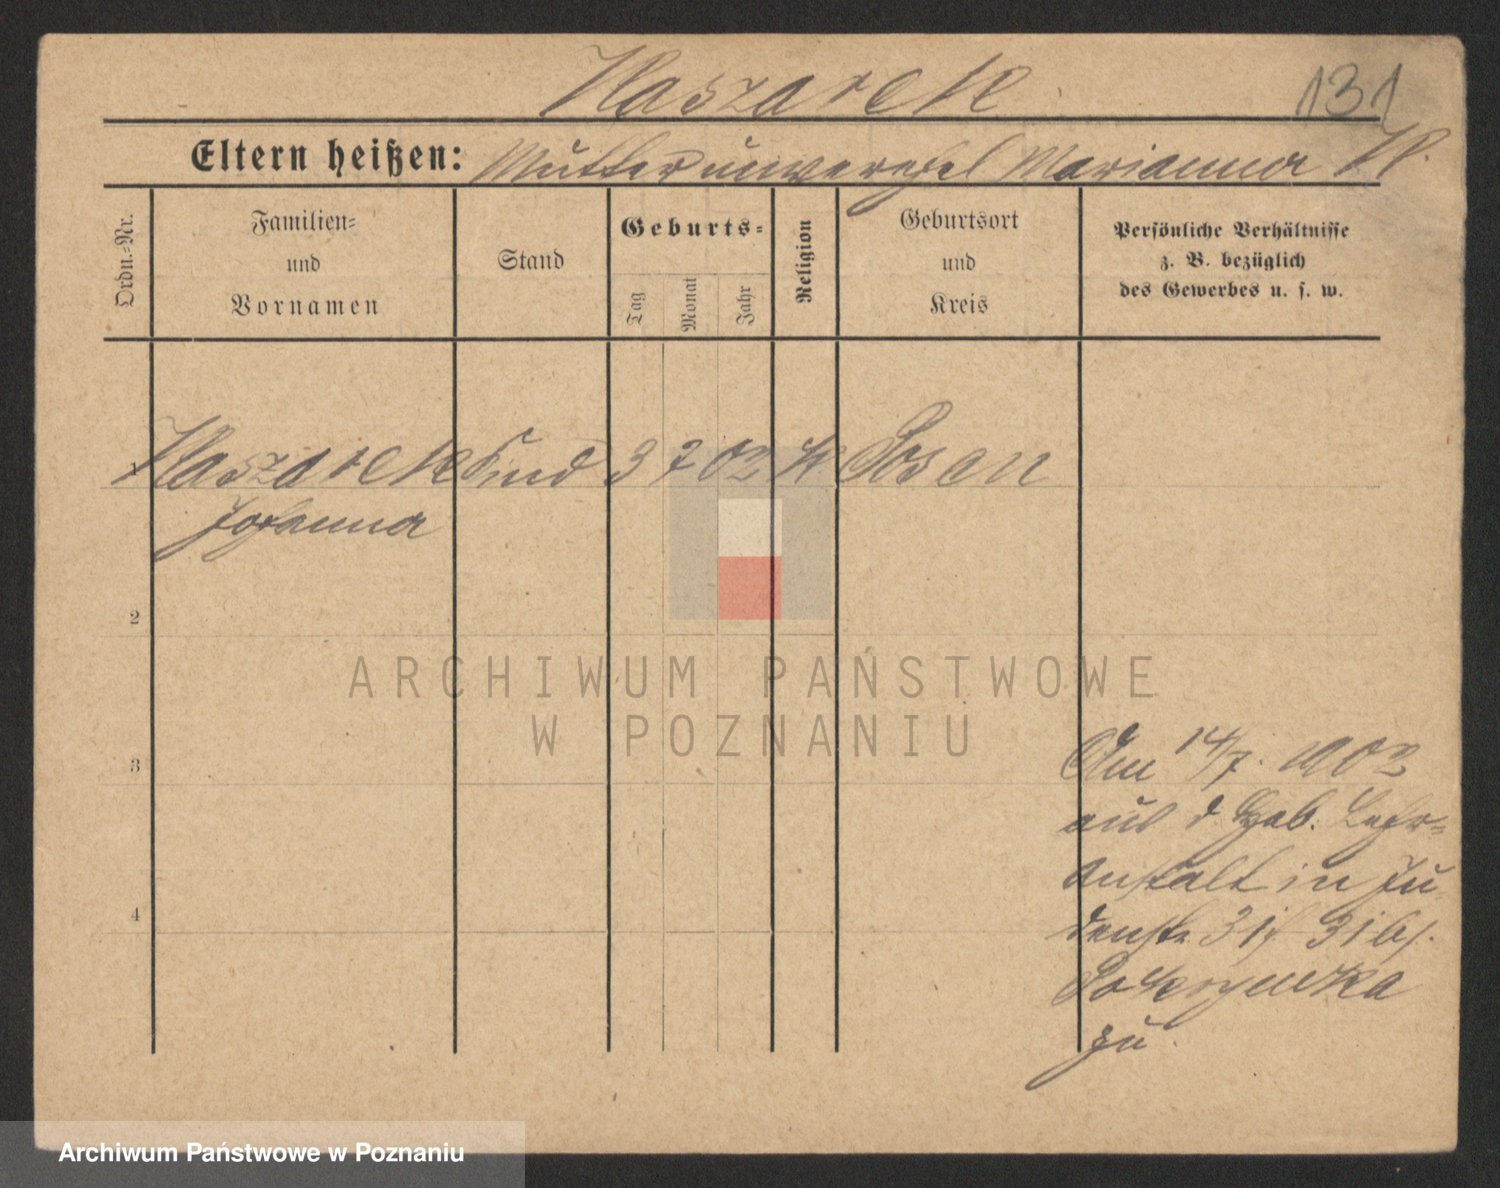 Kaszarek
131
Eltern heißen: Mutter unverehel Marianna K.
Ordn.-Nr.
Familien-
und
Vornamen
Stand
Geburts-
Tag
Monat
Jahr
Religion
Geburtsort
und
Kreis
Persönliche Verhältnisse
z. B. bezüglich
des Gewerbes u. s. w.
1 Kaszarek Kind 3 7 02 k Posen
Johanna
2
3
4
ARCHIWUM PAŃSTWOWE
W POZNANIU
Am 14/7. 1902
aus d. Heb. Lehr-
anstalt in Ju
denstr. 31 bs.
zu
Archiwum Państwowe w Poznaniu